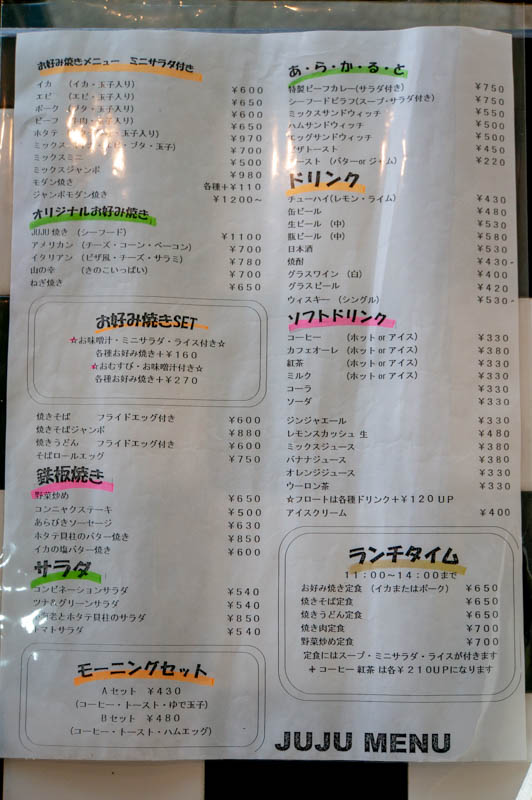 お好み焼きメニュー ミニサラダ付き
イカ (イカ・玉子入り) ¥600
エビ (エビ・玉子入り) ¥650
ポーク (ブタ・玉子入り) ¥600
ビーフ (牛肉・玉子入り) ¥650
ホタテ 玉子入り) ¥970
ミックス エビ・ブタ・玉子) ¥700
ミックスミニ ¥500
ミックスジャンボ ¥980
モダン焼き 各種+¥110
ジャンボモダン焼き ¥1200~
オリジナルお好み焼き
JUJU焼き (シーフード) ¥1100
アメリカン (チーズ・コーン・ベーコン) ¥700
イタリアン (ピザ風・チーズ・サラミ) ¥780
山の幸 (きのこいっぱい) ¥700
ねぎ焼き ¥650
お好み焼きSET
☆お味噌汁・ミニサラダ・ライス付き☆
各種お好み焼き+¥160
☆おむすび・お味噌汁付き☆
各種お好み焼き+¥270
焼きそば フライドエッグ付き ¥600
焼きそばジャンボ ¥880
焼きうどん フライドエッグ付き ¥600
そばロールエッグ ¥750
鉄板焼き
野菜炒め ¥650
コンニャクステーキ ¥500
あらびきソーセージ ¥630
ホタテ貝柱のバター焼き ¥850
イカの塩バター焼き ¥600
サラダ
コンビネーションサラダ ¥540
ツナ&グリーンサラダ ¥540
海老とホタテ貝柱のサラダ ¥850
トマトサラダ ¥540
モーニングセット
Aセット ¥430
(コーヒー・トースト・ゆで玉子)
Bセット ¥480
(コーヒー・トースト・ハムエッグ)
あ・ら・か・る・と
特製ビーフカレー(サラダ付き) ¥750
シーフードピラフ(スープ・サラダ付き) ¥750
ミックスサンドウィッチ ¥550
ハムサンドウィッチ ¥500
エッグサンドウィッチ ¥500
ピザトースト ¥450
トースト (バターorジャム) ¥220
ドリンク
チューハイ(レモン・ライム) ¥430
缶ビール ¥480
生ビール (中) ¥530
瓶ビール (中) ¥580
日本酒 ¥530
焼酎 ¥430~
グラスワイン (白) ¥400
グラスビール ¥420
ウィスキー (シングル) ¥530~
ソフトドリンク
コーヒー (ホットorアイス) ¥330
カフェオーレ (ホットorアイス) ¥380
紅茶 (ホットorアイス) ¥330
ミルク (ホットorアイス) ¥330
コーラ ¥330
ソーダ ¥330
ジンジャエール ¥330
レモンスカッシュ 生 ¥480
ミックスジュース ¥380
バナナジュース ¥380
オレンジジュース ¥330
ウーロン茶 ¥330
☆フロートは各種ドリンク+¥120UP
アイスクリーム ¥400
ランチタイム
11:00~14:00まで
お好み焼き定食 (イカまたはポーク) ¥650
焼きそば定食 ¥650
焼きうどん定食 ¥650
焼き肉定食 ¥700
野菜炒め定食 ¥700
定食にはスープ・ミニサラダ・ライスが付きます
+コーヒー紅茶は各¥210UPになります
JUJU MENU